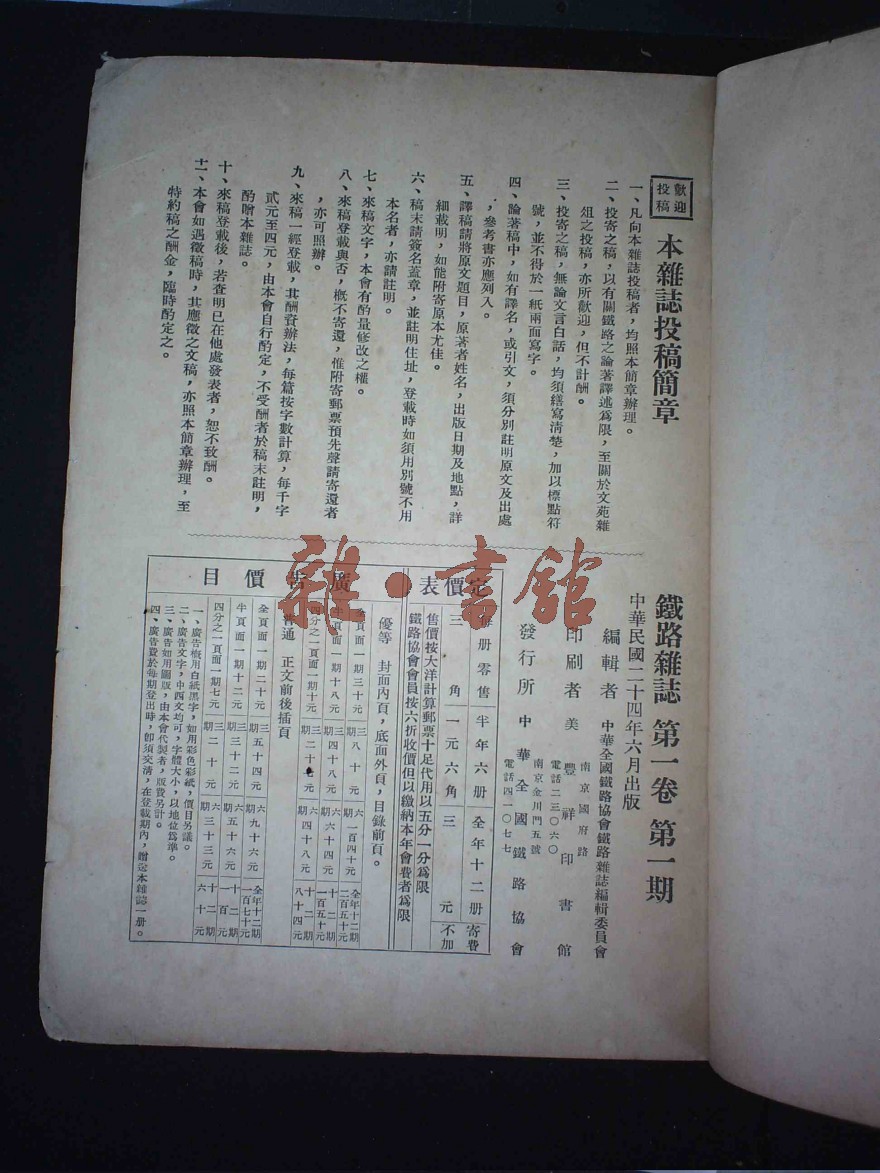 歡迎投稿
本雜誌投稿簡章
一、凡向本雜誌投稿者，均照本簡章辦理。
二、投寄之稿，以有關鐵路之論著譯述為限，至關於文苑雜
俎之投稿，亦所歡迎，但不計酬。
三、投寄之稿，無論文言白話，均須繕寫清楚，加以標點符
號，並不得於一紙兩面寫字。
四、論著稿中，如有譯名，或引文，須分別註明原文及出處
，參考書亦應列入。
五、譯稿請將原文題目，原著者姓名，出版日期及地點，詳
細載明，如能附寄原本尤佳。
六、稿末請簽名蓋章，並註明住址，登載時如須用別號不用
本名者，亦請註明。
七、來稿文字，本會有酌量修改之權。
八、來稿登載與否，概不寄還，惟附寄郵票預先聲請寄還者
，亦可照辦。
九、來稿一經登載，其酬資辦法，每篇按字數計算，每千字
貳元至四元，由本會自行酌定，不受酬者於稿末註明，
酌贈本雜誌。
十、來稿登載後，若查明已在他處發表者，恕不致酬。
十一、本會如遇徵稿時，其應徵之文稿，亦照本簡章辦理，至
特約稿之酬金，臨時酌定之。
鐵路雜誌 第一卷 第一期
中華民國二十四年六月出版
編輯者 中華全國鐵路協會鐵路雜誌編輯委員會
印刷者 美豐祥印書館
南京國府路
電話二三〇六〇
發行所 中華全國鐵路協會
南京金川門五號
電話四一〇七七
定價表
每冊零售 半年六冊 全年十二冊 寄費
三角 一元六角 三元 不加
售價按大洋計算郵票十足代用以五分一分為限
鐵路協會會員按六折收價但以繳納本年會費者為限
廣告價目
優等 封面內頁，底面外頁，目錄前頁。
全頁面一期三十元 三期八十元 六期一百四十元 全年十二期二百五十元
半頁面一期十八元 三期四十八元 六期六十四元 十二期一百五十元
四分之一頁面一期十元 三期二十七元 六期四十八元 十二期八十四元
普通 正文前後插頁
全頁面一期二十元 三期五十四元 六期九十六元 全年十二期一百七十元
半頁面一期十二元 三期三十二元 六期五十六元 十二期一百元
四分之一頁面一期七元 三期二十元 六期三十三元 十二期六十元
一、廣告概用白紙黑字，如用彩色彩紙，價目另議。
二、廣告文字，中西文均可，字體大小，以地位為準。
三、廣告如用圖版，由本會代製者，版費另計。
四、廣告費於每期登出時，即須交清，在登載期內，贈送本雜誌一冊。
雜·書館